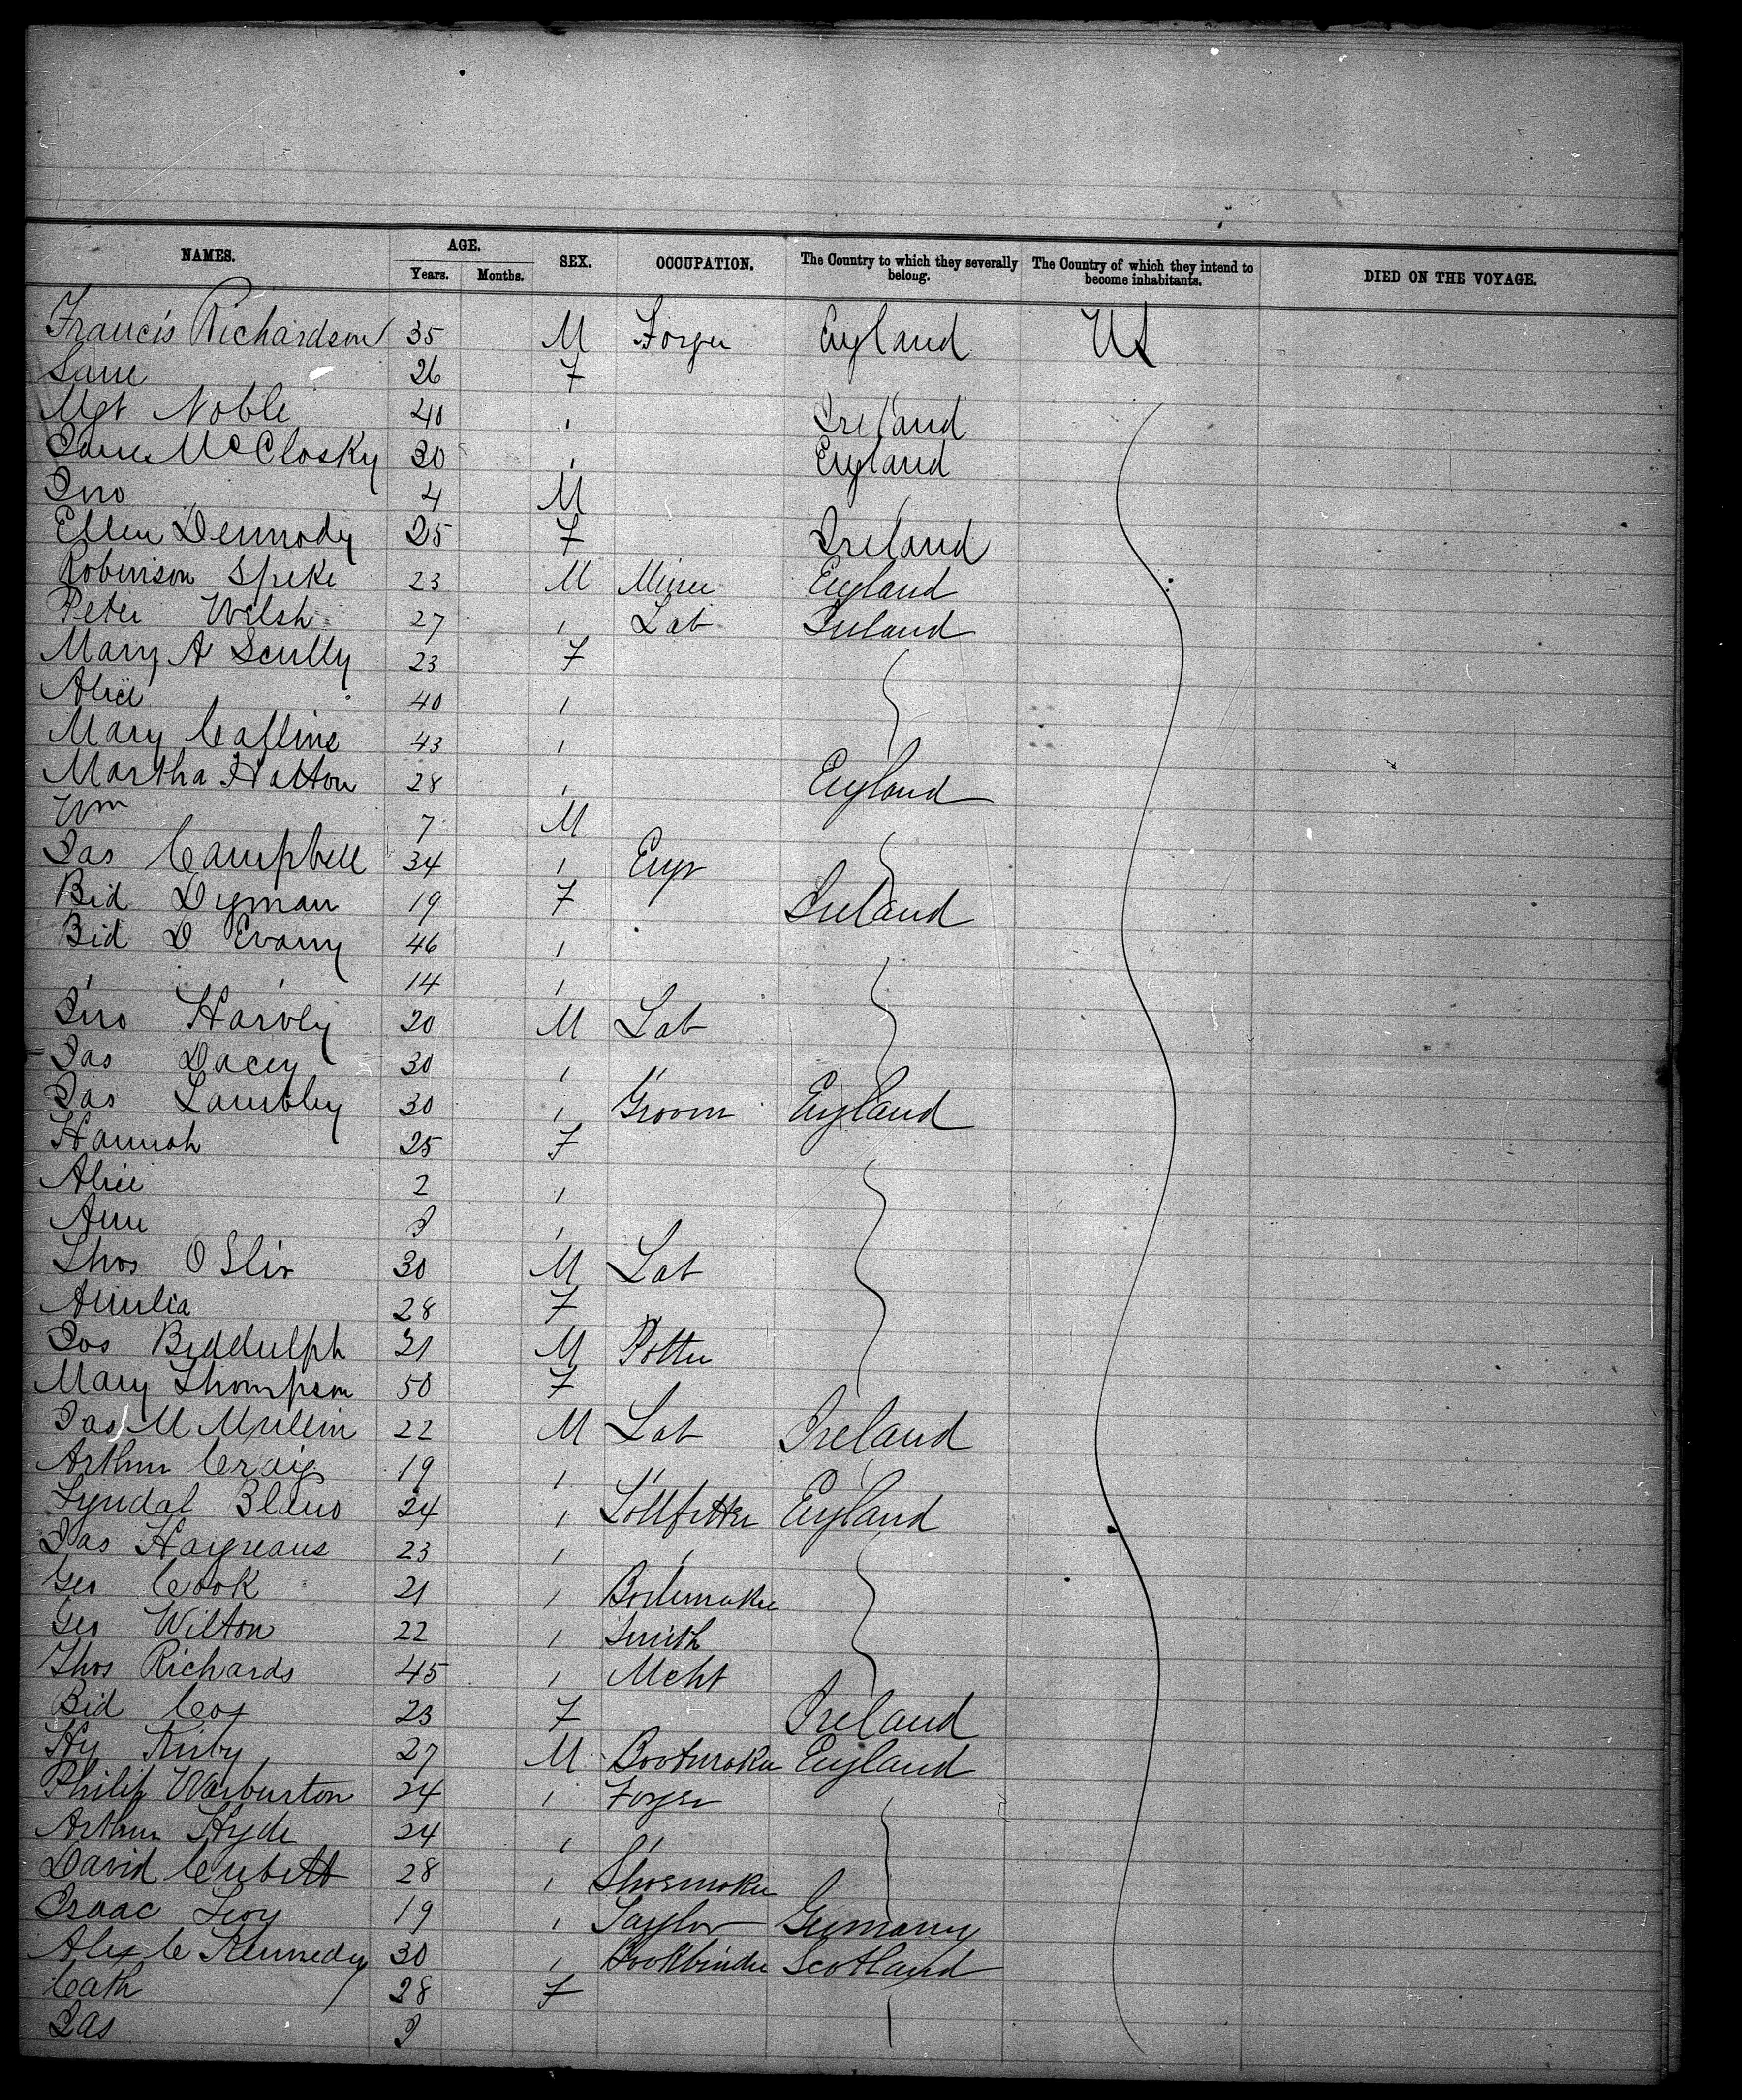 NAMES. AGE. SEX. OCCUPATION. The Country to which they severally belong. The Country of which they intend to become inhabitants. DIED ON THE VOYAGE.
Years. Months.
Francis Richardson 35 M Forger England US
Jane 26 F
Mgt Noble 40 " Ireland
Jane McClosky 30 " England
Jno 4 M
Ellen Dermody 25 F Ireland
Robinson Speke 23 M Miner England
Peter Welsh 27 " Lab Ireland
Mary A Scully 23 F
Alice 40 "
Mary Calline 43 "
Martha Hatton 28 " England
Wm 7 M
Jas Campbell 34 " Engr
Bid Digman 19 F Ireland
Bid D Evany 46 "
" " 14 "
Jno Harvey 20 M Lab
Jas Dacey 30 " "
Jas Lambley 30 " Groom England
Hannah 25 F
Alice 2 "
Ann "
Thos 30 M Lab
Amelia 28 F
Jos Biddulph 21 M Potter
Mary Thompson 50 F
Jas M Mullin 22 M Lab Ireland
Arthur Craig 19 " "
Lyndal 24 " England
Jas Hargreaves 23 " "
Geo Cook 21 "
Geo Wilton 22 " Smith
Thos Richards 45 " Mcht
Bid Cox 23 F Ireland
Hy Kirby 27 M Bootmaker England
Philip Warburton 24 " Forger
Arthur Hyde 24 " "
David Cubitt 28 " Shoemaker
Isaac Levy 19 " Taylor Germany
Alex C Kennedy 30 " Bookbinder Scotland
Cath 28 F
Jas